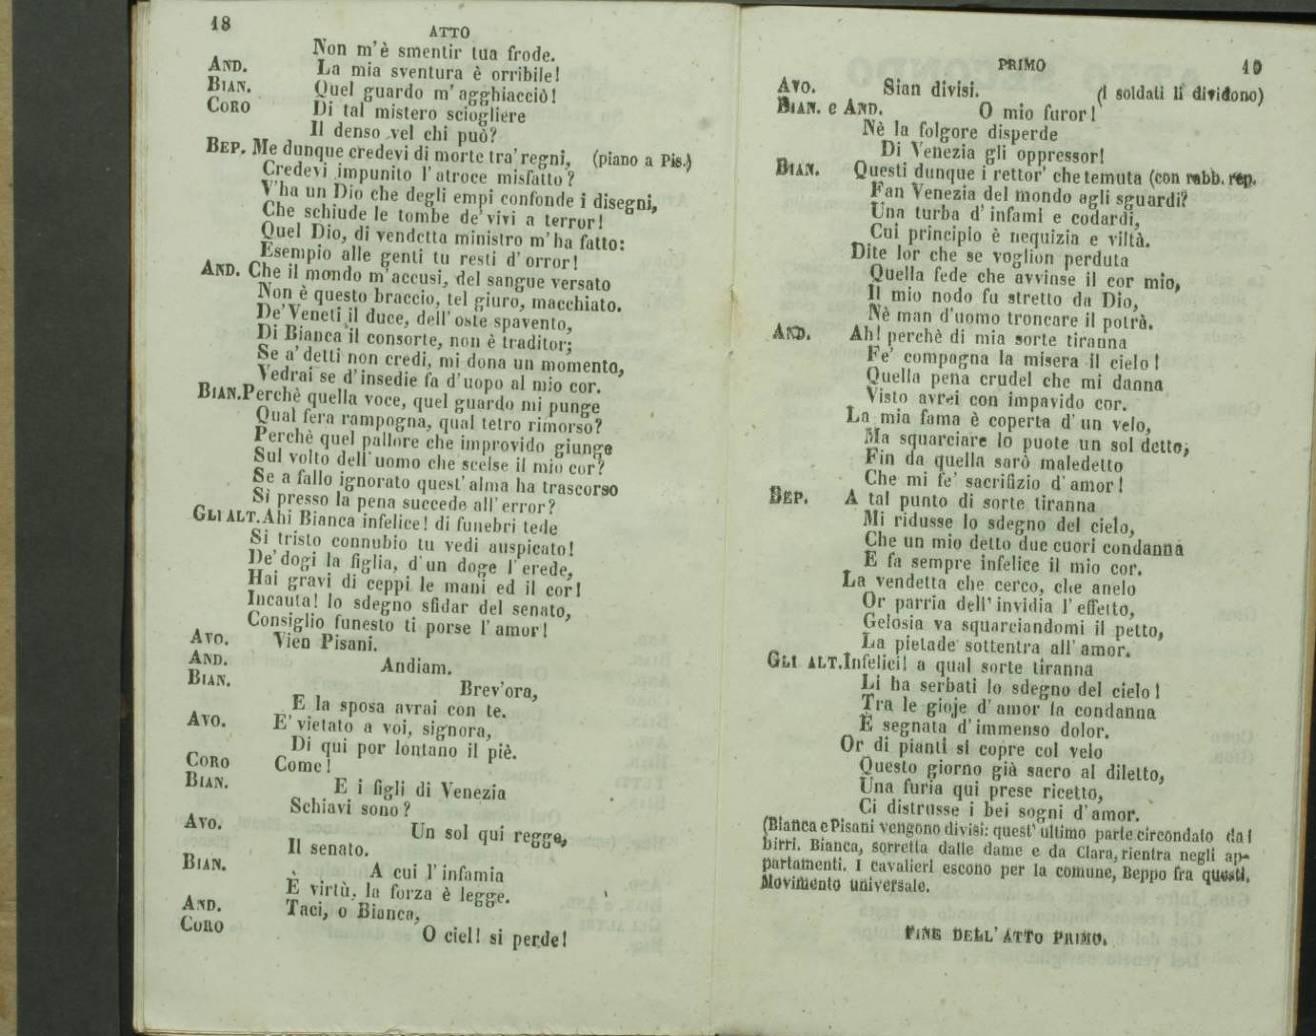 18
ATTO
Non m'è smentir tua frode.
AND. La mia sventura è orribile!
BIAN. Quel guardo m'agghiacciò!
CORO Di tal mistero sciogliere
Il denso vel chi può?
BEP. Me dunque credevi di morte tra' regni, (piano a Pis.)
Credevi impunito l'atroce misfatto?
V'ha un Dio che degli empi confonde i disegni,
Che schiude le tombe de' vivi a terror!
Quel Dio, di vendetta ministro m'ha fatto:
Esempio alle genti tu resti d'orror!
AND. Che il mondo m'accusi, del sangue versato
Non è questo braccio, tel giuro, macchiato.
De'Veneti il duce, dell'oste spavento,
Di Bianca il consorte, non è traditor;
Se a' detti non credi, mi dona un momento,
Vedrai se d'insedie fa d'uopo al mio cor.
BIAN. Perchè quella voce, quel guardo mi punge
Qual fera rampogna, qual tetro rimorso?
Perchè quel pallore che improvido giunge
Sul volto dell'uomo che scelse il mio cor?
Se a fallo ignorato quest'alma ha trascorso
Sì presso la pena succede all'error?
GLI ALT. Ahi Bianca infelice! di funebri tede
Si tristo connubio tu vedi auspicato!
De'dogi la figlia, d'un doge l'erede,
Hai gravi di ceppi le mani ed il cor!
Incauta! lo sdegno sfidar del senato,
Consiglio funesto ti porse l'amor!
AVO. Vien Pisani.
AND. Andiam.
BIAN. Brev'ora,
E la sposa avrai con te.
AVO. E' vietato a voi, signora,
Di qui por lontano il piè.
CORO Come!
BIAN. E i figli di Venezia
Schiavi sono?
AVO. Un sol qui regge,
Il senato.
BIAN. A cui l'infamia
È virtù, la forza è legge.
AND. Taci, o Bianca,
CORO O ciel! si perde!
PRIMO
19
AVO. Sian divisi. (I soldati li dividono)
BIAN. e AND. O mio furor!
Nè la folgore disperde
Di Venezia gli oppressor!
BIAN. Questi dunque i rettor' che temuta (con rabb. rep.
Fan Venezia del mondo agli sguardi?
Una turba d'infami e codardi,
Cui principio è nequizia e viltà.
Dite lor che se voglion perduta
Quella fede che avvinse il cor mio,
Il mio nodo fu stretto da Dio,
Nè man d'uomo troncare il potrà.
AND. Ah! perchè di mia sorte tiranna
Fe' compagna la misera il cielo!
Quella pena crudel che mi danna
Visto avrei con impavido cor.
La mia fama è coperta d'un velo,
Ma squarciare lo puote un sol detto;
Fin da quella sarò maledetto
Che mi fe' sacrifizio d'amor!
BEP. A tal punto di sorte tiranna
Mi ridusse lo sdegno del cielo,
Che un mio detto due cuori condanna
E fa sempre infelice il mio cor.
La vendetta che cerco, che anelo
Or parria dell'invidia l'effetto,
Gelosia va squarciandomi il petto,
La pietade sottentra all'amor.
GLI ALT. Infelici! a qual sorte tiranna
Li ha serbati lo sdegno del cielo!
Tra le gioje d'amor la condanna
È segnata d'immenso dolor.
Or di pianti si copre col velo
Questo giorno già sacro al diletto,
Una furia qui prese ricetto,
Ci distrusse i bei sogni d'amor.
(Bianca e Pisani vengono divisi: quest'ultimo parte circondato dai
birri. Bianca, sorretta dalle dame e da Clara, rientra negli ap-
partamenti. I cavalieri escono per la comune, Beppo fra questi.
Movimento universale.
FINE DELL'ATTO PRIMO.